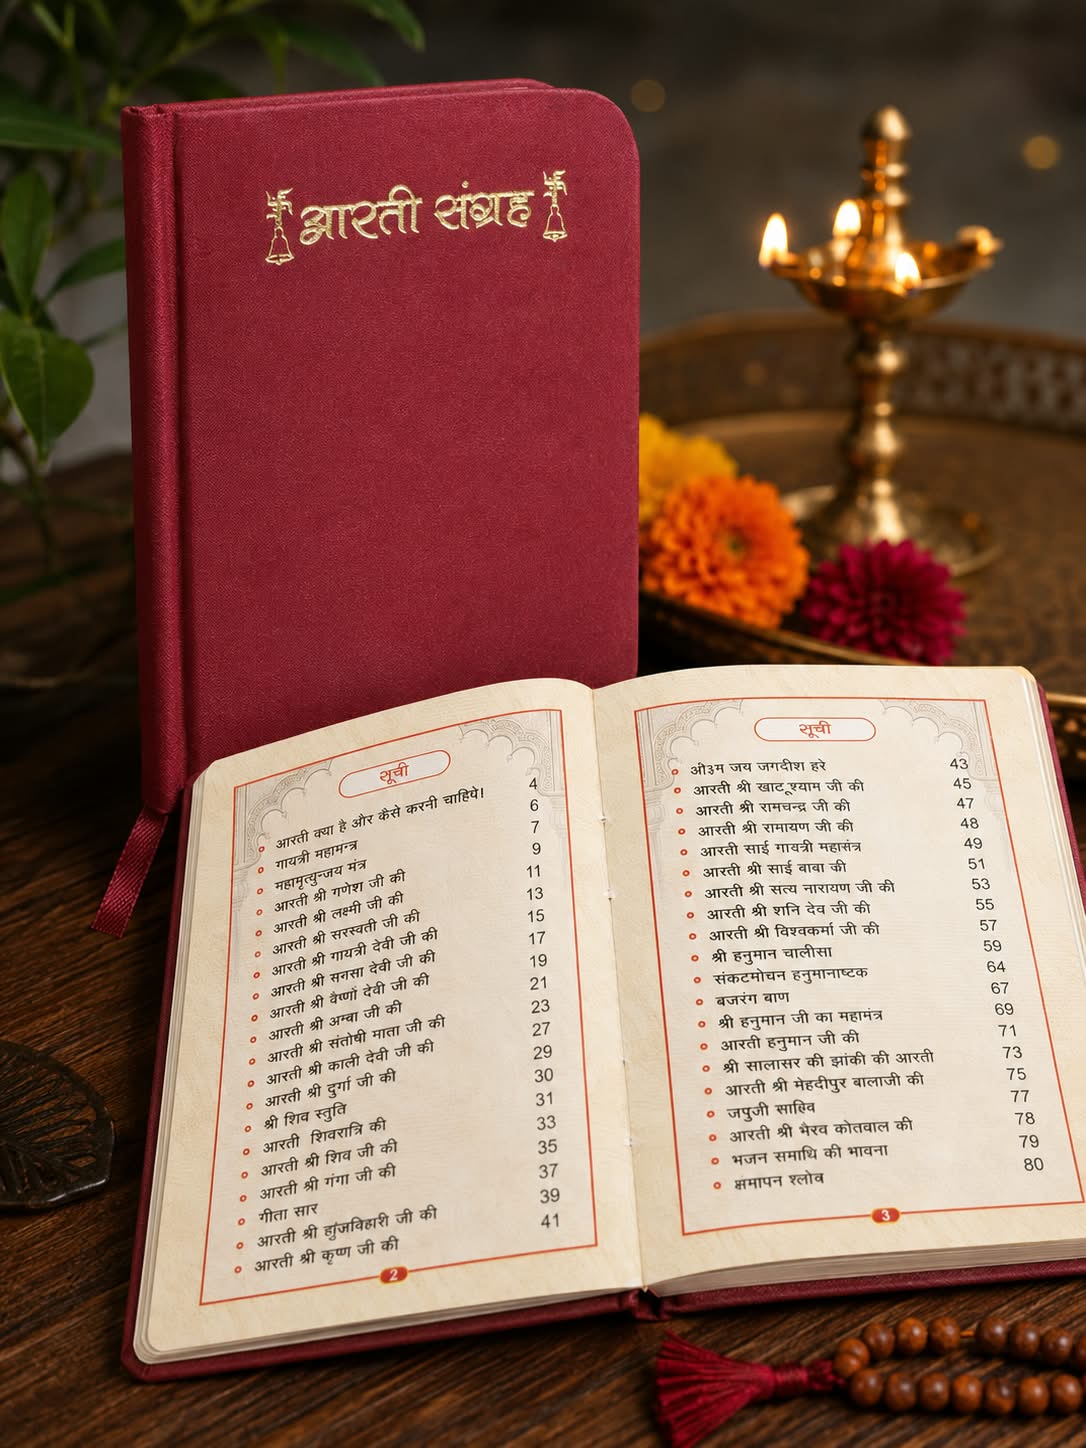 आरती संग्रह
सूची
आरती क्या है और कैसे करनी चाहिये। 4
गायत्री महामन्त्र 6
महामृत्युन्जय मंत्र 7
आरती श्री गणेश जी की 9
आरती श्री लक्ष्मी जी की 11
आरती श्री सरस्वती जी की 13
आरती श्री गायत्री देवी जी की 15
आरती श्री मनसा देवी जी की 17
आरती श्री वैष्णों देवी जी की 19
आरती श्री अम्बा जी की 21
आरती श्री संतोषी माता जी की 23
आरती श्री काली देवी जी की 27
आरती श्री दुर्गा जी की 29
श्री शिव स्तुति 30
आरती शिवरात्रि की 31
आरती श्री शिव जी की 33
आरती श्री गंगा जी की 35
गीता सार 37
आरती श्री जी की 39
आरती श्री कृष्ण जी की 41
2
सूची
ओ३म जय जगदीश हरे 43
आरती श्री खाटू श्याम जी की 45
आरती श्री रामचन्द्र जी की 47
आरती श्री रामायण जी की 48
आरती साई गायत्री महामंत्र 49
आरती श्री साई बाबा की 51
आरती श्री सत्य नारायण जी की 53
आरती श्री शनि देव जी की 55
आरती श्री विश्वकर्मा जी की 57
श्री हनुमान चालीसा 59
संकटमोचन हनुमानाष्टक 64
बजरंग बाण 67
श्री हनुमान जी का महामंत्र 69
आरती हनुमान जी की 71
श्री सालासर की झांकी की आरती 73
आरती श्री मेहदीपुर बालाजी की 75
जपुजी साहिव 77
आरती श्री भैरव कोतवाल की 78
भजन समाधि की भावना 79
क्षमापन श्लोव 80
3